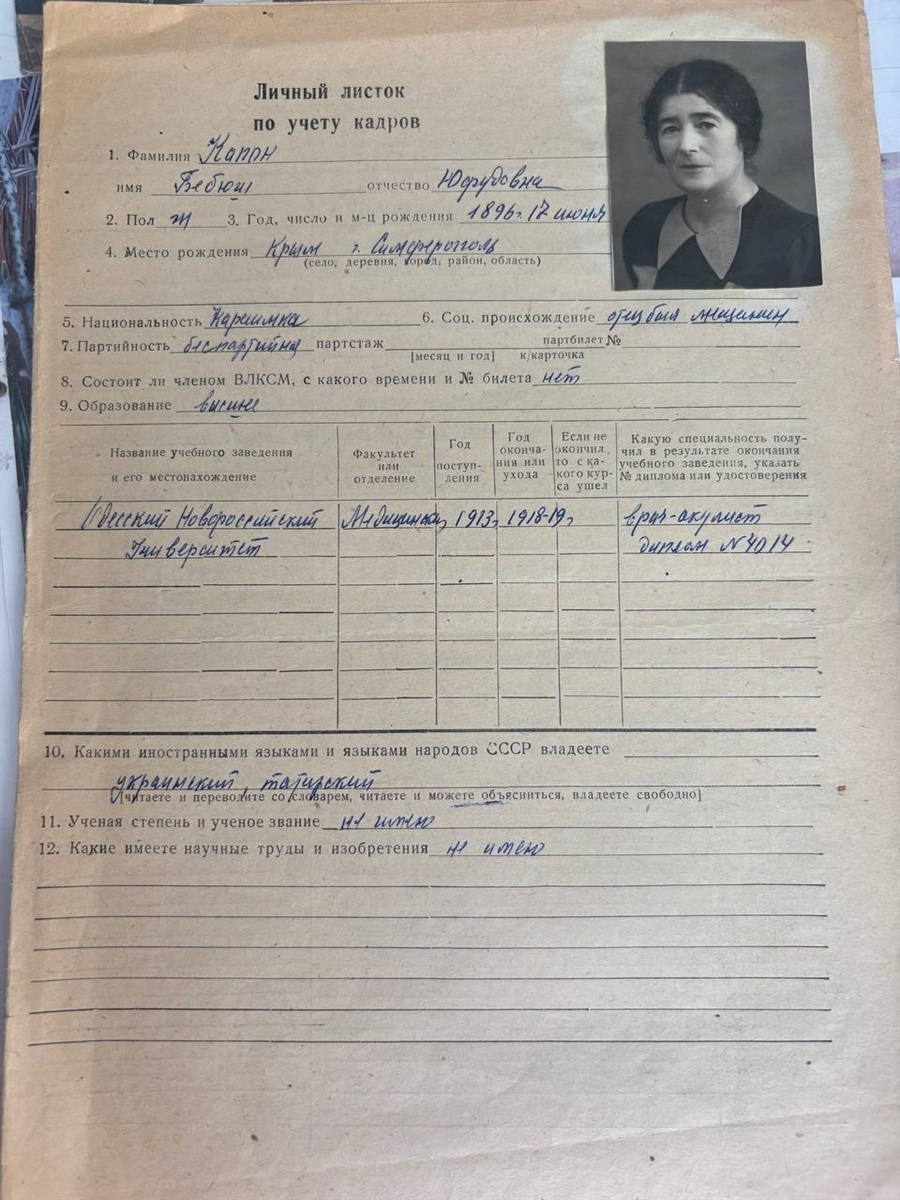 Личный листок
по учету кадров
1. Фамилия Капон
имя Бебюш отчество Юфудовна
2. Пол ж 3. Год, число и м-ц рождения 1896 г. 17 июня
4. Место рождения Крым г. Симферополь
(село, деревня, город, район, область)
5. Национальность Караимка 6. Соц. происхождение отец был мещанин
7. Партийность беспартийна партстаж партбилет №
[месяц и год] к/карточка
8. Состоит ли членом ВЛКСМ, с какого времени и № билета нет
9. Образование высшее
Название учебного заведения и его местонахождение
Факультет или отделение
Год поступ-ления
Год оконча-ния или ухода
Если не окончил, то с ка-кого кур-са ушел
Какую специальность полу-чил в результате окончания учебного заведения, указать № диплома или удостоверения
Одесский Новороссийский Медицинский 1913г. 1918-19г. врач-окулист
Университет диплом N 4014
10. Какими иностранными языками и языками народов СССР владеете
украинский, татарский
[читаете и переводите со словарем, читаете и можете объясниться, владеете свободно]
11. Ученая степень и ученое звание не имею
12. Какие имеете научные труды и изобретения не имею